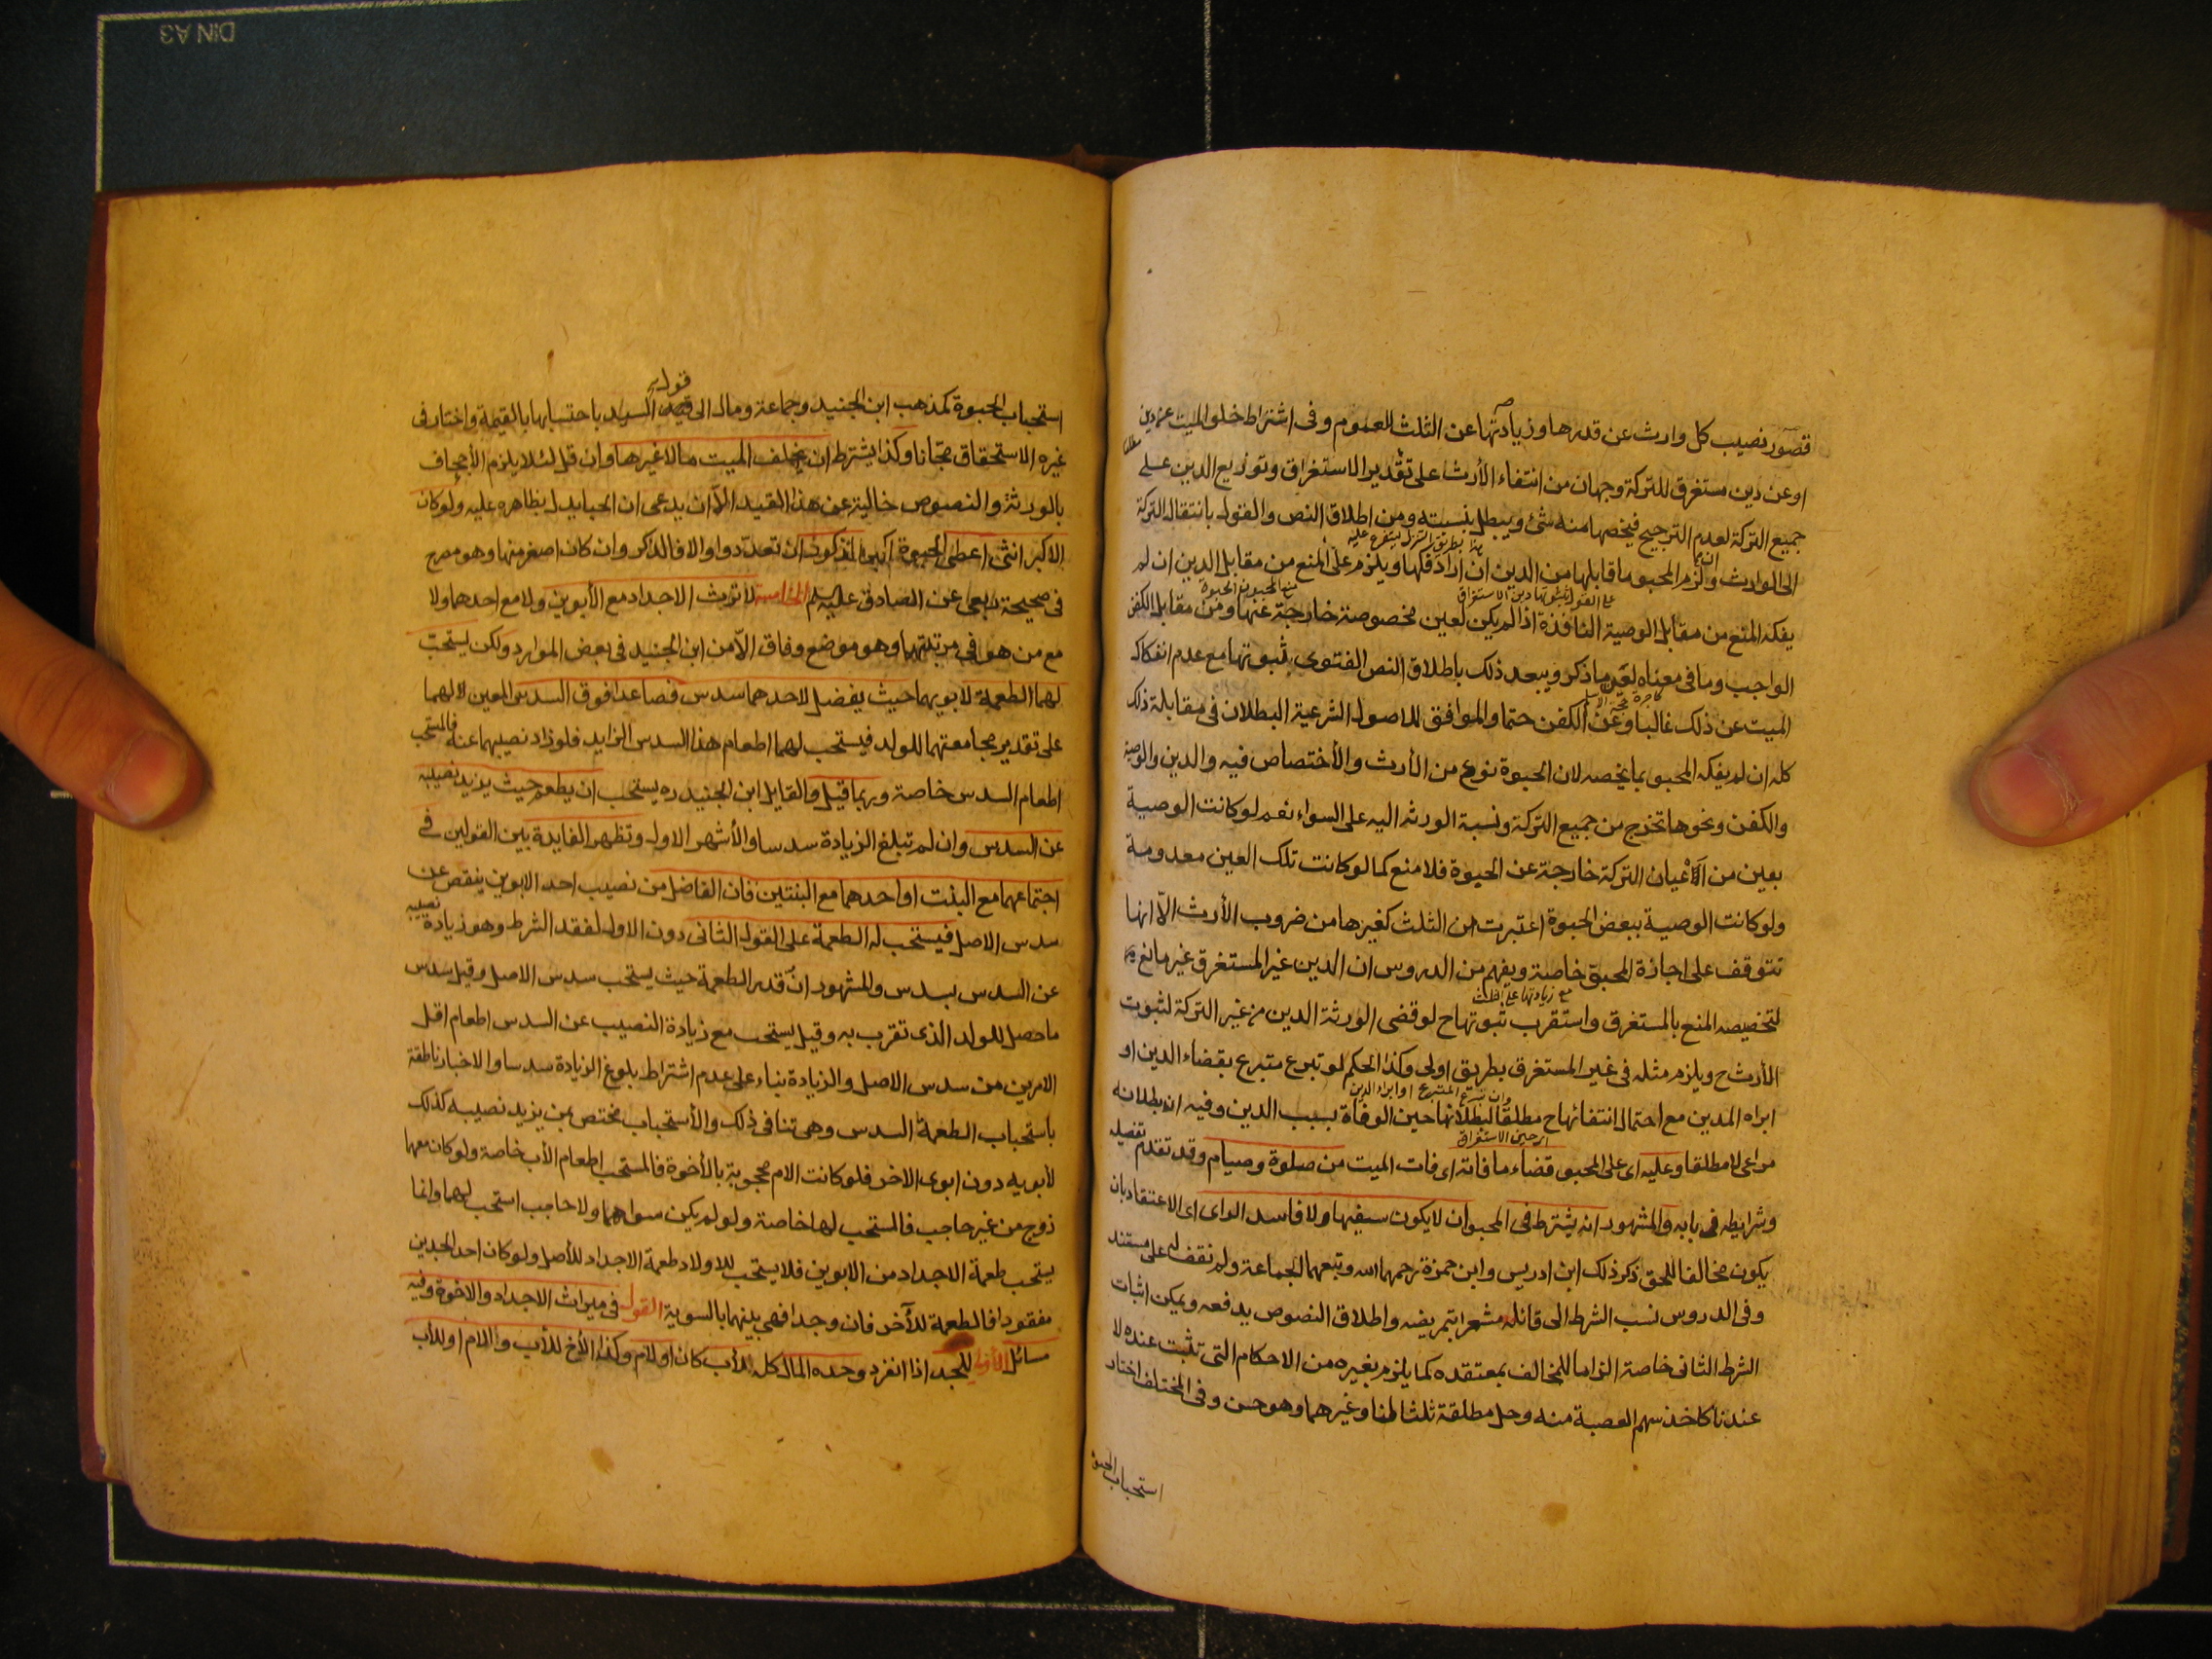 قصور نصيب كل وارث عن قدرها وزيادتها عن الثلث للعموم وفى اشتراط خلو الميت عن دين
مطلقا
او عن دين مستغرق للتركة وجهان من انتفاء الأرث على تقدير الاستغراق وتوزيع الدين على
جميع التركة لعدم الترجيح فيخصها منه شئ ويبطل بنسبته ومن اطلاق النص والقول بانتقال التركة
الى الوارث ولزم المحبو ما قابلها من الدين ان اراد فكها ويلزم على المنع من مقابل الدين ان لم
يفكه المنع من مقابل الوصية النافذة اذا لم يكن لعين مخصوصة خارجة عنها ومن مقابل الكفن
الواجب وما فى معناه لعين ما ذكر ويبعد ذلك باطلاق النص الفتوى بثبوتها مع عدم انفكاك
الميت عن ذلك غالبا وعن الكفن حتما والموافق للاصول الشرعية البطلان فى مقابلة ذلك
كله ان لم يفكه المحبو بما يخصه لان الحبوة نوع من الأرث والأختصاص فيه والدين والوصية
والكفن ونحوها تخرج من جميع التركة ونسبة الورثه اليه على السواء نعم لو كانت الوصية
بعين من أعيان التركة خارجة عن الحبوة فلا منع كما لو كانت تلك العين معدومة
ولو كانت الوصية ببعض الحبوة اعتبرت من الثلث كغيرها من ضروب الأرث الّا انها
تتوقف على اجازة المحبو خاصة ويفهم من الدروس ان الدين غير المستغرق غير مانع
مع زيادتها على الثلث
لتخصيصه المنع بالمستغرق واستقرب ثبوتها ح لو قضى الورثة الدين من غير التركة لثبوت
الأرث ح ويلزم مثله فى غير المستغرق بطريق اولى وكذا الحكم لو تبرع متبرع بقضاء الدين او
ابراه المدين مع احتمال انتفائها ح مطلقا لبطلانها حين الوفاة بسبب الدين وفيه ان بطلانه
مراعى لا مطلقا وعليه اى على المحبو قضاء ما فاته اى فات الميت من صلوة وصيام وقد تقدم تفصيله
وشرايطه فى بابه والمشهور انه يشترط فى المحبو ان لا يكون سفيها ولا فاسد الراى اى الاعتقاد بان
يكون مخالفا للحق ذكر ذلك ابن ادريس وابن حمزة رحمهما الله وتبعهما الجماعة ولم نقف له على مستند
وفى الدروس نسب الشرط الى قائله مشعرا بتمريضه واطلاق النصوص يدفعه ويمكن اثبات
الشرط الثانى خاصة الزاما للمخالف بمعتقده كما يلزم بغيره من الاحكام التى تثبت عنده لا
عندنا كاخذ سهم العصبة منه وحل مطلقة ثلثا لنا وغيرهما وهو حسن وفى المختلف اختار
استحباب الحبوة
قول
استحباب الحبوة كمذهب ابن الجنيد وجماعة ومال الى قول السيد باحتسابها بالقيمة واختار فى
غيره الاستحقاق مجّانا وكذا يشترط ان يخلف الميت مالا غيرها وان قل لئلا يلزم الأجحاف
بالورثة والنصوص خالية عن هذا القيد الّا ان يدعى ان الحبا يدل بظاهره عليه ولو كان
الاكبر انثى اعطى الحبوة اكبر الذكور ان تعدّدوا والا فالذكر وان كان اصغر منها وهو مصرح
فى صحيحة ربعى عن الصادق عليه السلم الخامسة لا يرث الاجداد مع الأبوين ولا مع احدهما ولا
مع من هو فى مرتبتهما وهو موضع وفاق الّا من ابن الجنيد فى بعض الموارد ولكن يستحبّ
لهما الطعمة لابويهما حيث يفضل لاحدهما سدس فصاعدا فوق السدس المعين لهما
على تقدير مجامعتهما للولد فيستحب لهما اطعام هذا السدس الزايد فلو زاد نصيبهما عنه فالمستحب
اطعام السدس خاصة وربما قيل والقايل ابن الجنيد ره يستحب ان يطعم حيث يزيد نصيبه
عن السدس وان لم تبلغ الزيادة سدسا والأشهر الاول وتظهر الفايدة بين القولين فى
اجتماعهما مع البنت او احدهما مع البنتين فان الفاضل من نصيب احد الابوين ينقص عن
سدس الاصل فيستحب له الطعمة على القول الثانى دون الاول لفقد الشرط وهو زيادة نصيبه
عن السدس بسدس والمشهور انّ قدر الطعمة حيث يستحب سدس الاصل وقيل سدس
ما حصل للولد الذى تقرب به وقيل يستحب مع زيادة النصيب عن السدس اطعام اقل
الامرين من سدس الاصل والزيادة بناء على عدم اشتراط بلوغ الزيادة سدسا والاخبار ناطقة
باستحباب الطعمة السدس وهى تنافى ذلك والأستحباب مختص بمن يزيد نصيبه كذلك
لأبويه دون ابوى الاخر فلو كانت الام محجوبة بالأخوة فالمستحب اطعام الأب خاصة ولو كان معهما
زوج من غير حاجب فالمستحب لها خاصة ولو لم يكن سواهما ولا حاجب استحب لهما وانما
يستحب طعمة الاجداد من الابوين فلا يستحب للاولاد طعمة الاجداد للأصل ولو كان احد الجدين
مفقودا فالطعمة للآخر فان وجدا فهى بينهما بالسوية القول فى ميراث الاجداد والاخوة وفيه
مسائل الأولى للجد اذا انفرد وحده المال كله لأب كان او لام وكذا الأخ للأب والام او للأب